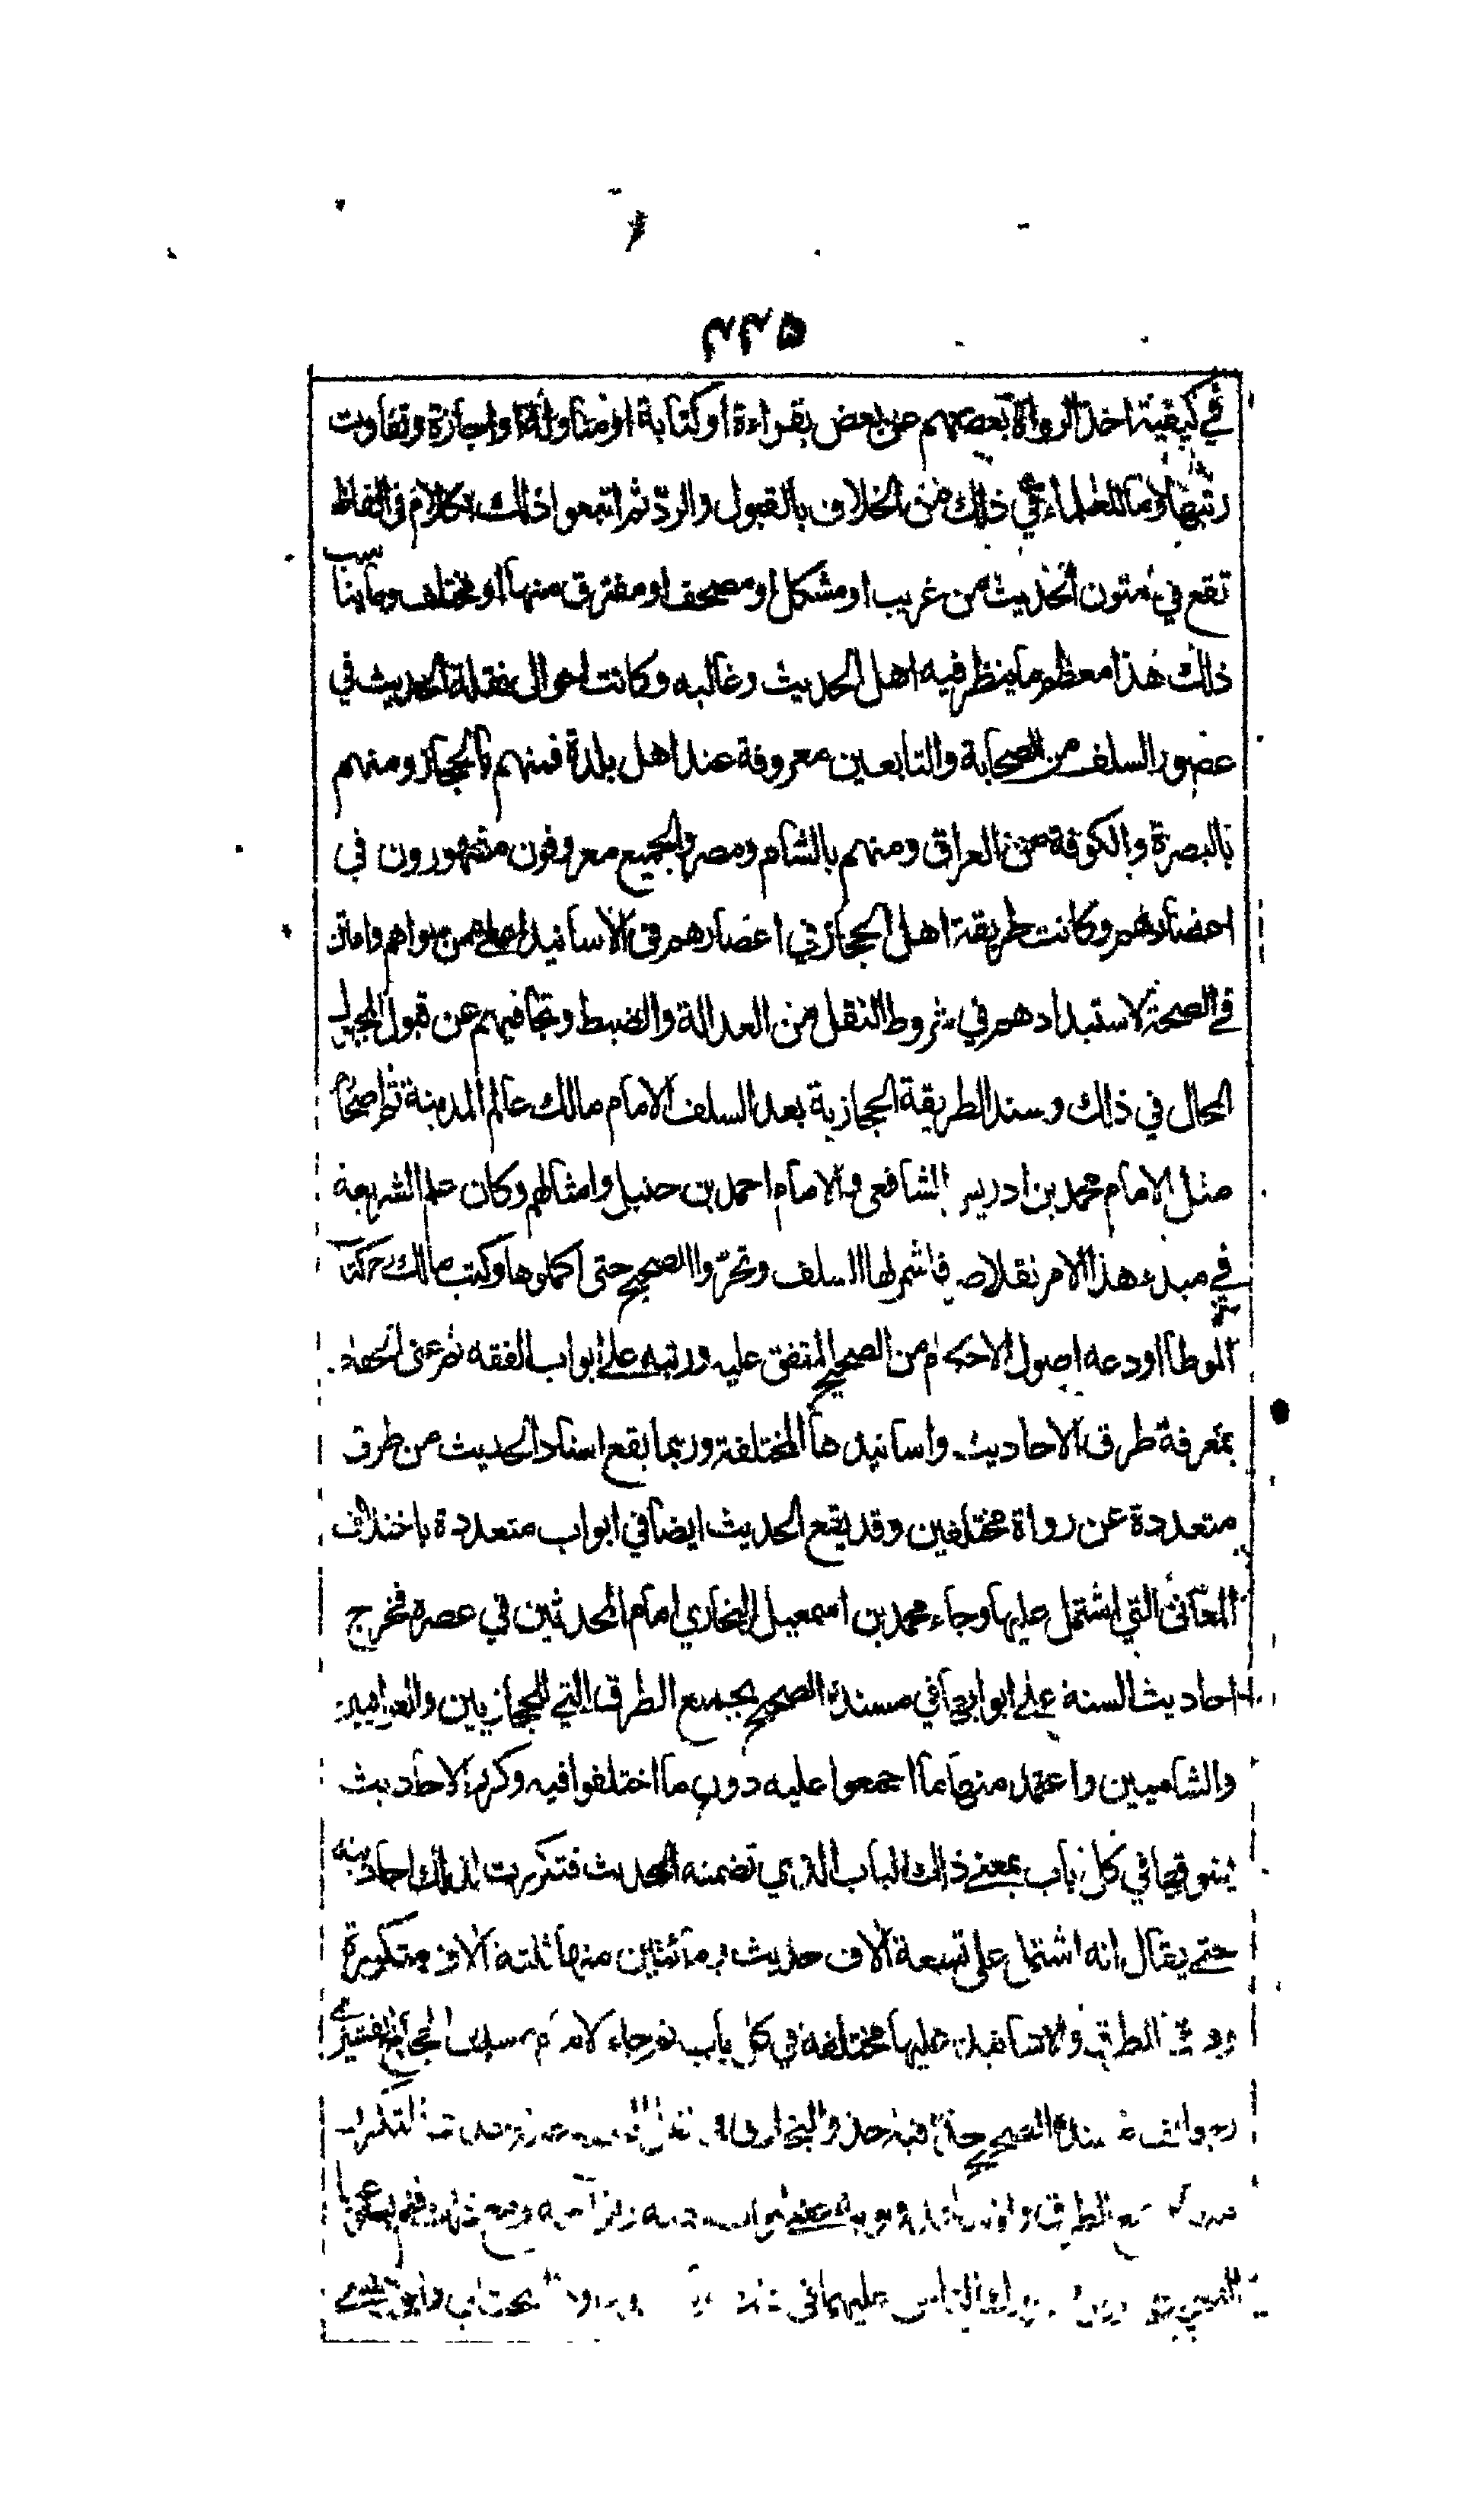 في كيفية اخذ الرواة بعضهم عن بعض بقراءة او كتابة او مناولة او اجازة وتفاوت
رتبها وما للعلماء في ذلك من الخلاف بالقبول والرد ثم اتبعوا ذلك بكلام في الفاظ
تقع في متون الحديث من غريب او مشكل او مصحف او مفترق منها او مختلف وما يناسب
ذلك هذا معظم ما ينظر فيه اهل الحديث وغالبه وكانت احوال نقلة الحديث في
عصور السلف من الصحابة والتابعين معروفة عند اهل بلدة فمنهم بالحجاز ومنهم
بالبصرة والكوفة من العراق ومنهم بالشام ومصر والجميع معروفون مشهورون في
اعصارهم وكانت طريقة اهل الحجاز في اعصارهم في الاسانيد اعلى من سواهم وامتن
في الصحة لاستبدادهم في شروط النقل من العدالة والضبط وتجافيهم عن قبول المجهول
الحال في ذلك وسند الطريقة الحجازية بعد السلف الامام مالك عالم المدينة ثم اصحابه
مثل الامام محمد بن ادريس الشافعي والامام احمد بن حنبل وامثالهم وكان علم الشريعة
في مبدء هذا الامر نقلا صرفا شمر لها السلف وتحروا الصحيح حتى اكملوها وكتب مالك رح كتاب
الموطا اودعه اصول الاحكام من الصحيح المتفق عليه ورتبه على ابواب الفقه ثم عنى الحفاظ
بمعرفة طرق الاحاديث واسانيدها المختلفة وربما يقع اسناد الحديث من طرق
متعددة عن رواة مختلفين وقد يقع الحديث ايضا في ابواب متعددة باختلاف
المعاني التي اشتمل عليها وجاء محمد بن اسمعيل البخاري امام المحدثين في عصره فخرج
احاديث السنة على ابوابها في مسنده الصحيح بجميع الطرق التي للحجازيين والعراقيين
والشاميين واعتمد منها ما اجمعوا عليه دون ما اختلفوا فيه وكرر الاحاديث
يسوقها في كل باب بمعنى ذلك الباب الذي تضمنه الحديث فتكررت لذلك احاديثه
حتى يقال انه اشتمل على تسعة آلاف حديث ومائتين منها ثلثة آلاف متكررة
الطرق والاسانيد عليها مختلفة في كل باب ثم جاء الامام مسلم بن الحجاج القشيري
مسنده الصحيح حذا فيه حذو البخاري في نقل
الطرق وبوبه على ابواب
الناس عليهما في